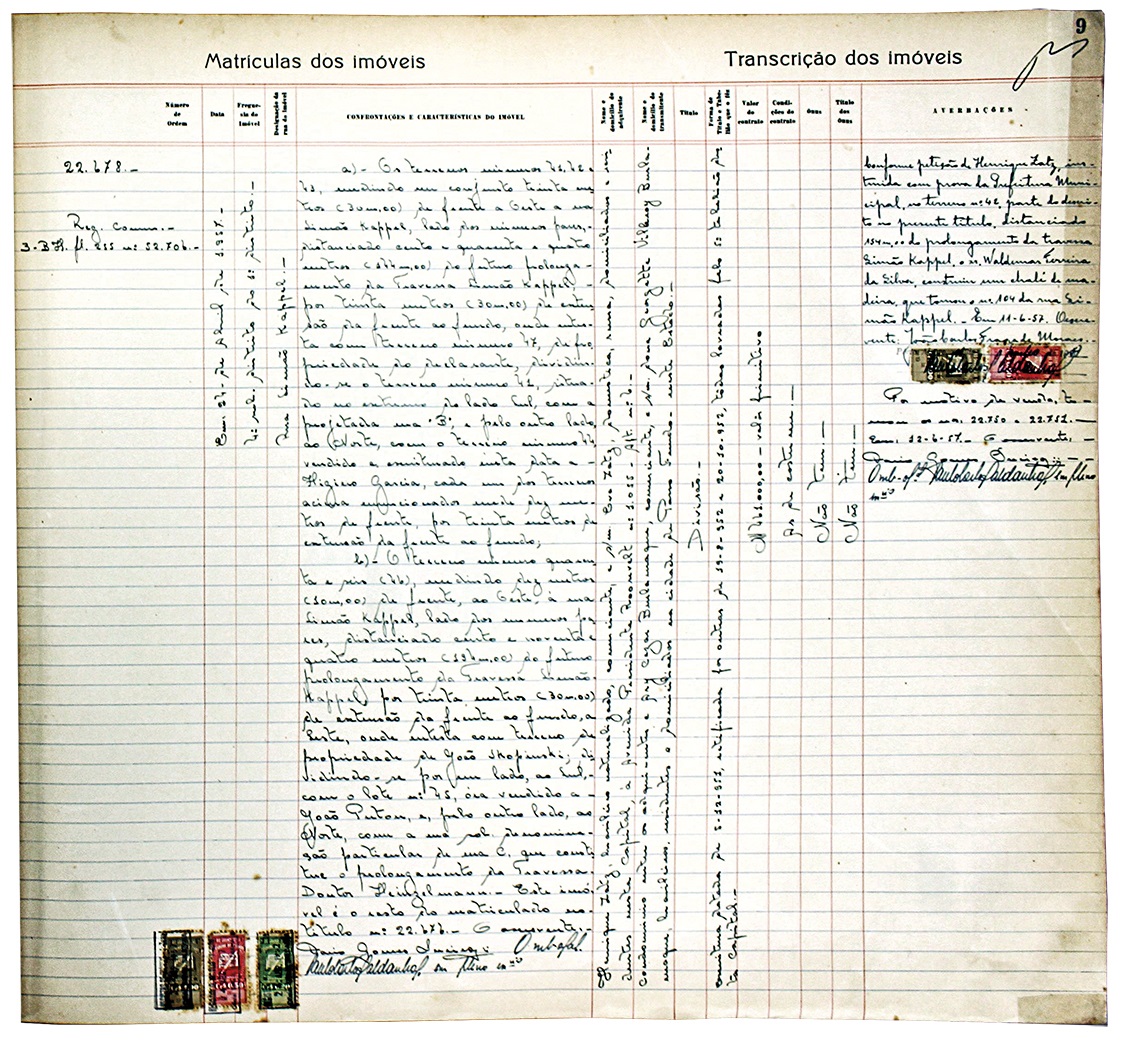 9
Matrículas dos imóveis
Transcrição dos imóveis
Número de Ordem
Data
Freguesia do Imóvel
Designação da rua do Imóvel
CONFRONTAÇÕES E CARACTERÍSTICAS DO IMÓVEL
Nome e domicílio do adquirente
Nome e domicílio do transmitente
Título
Forma do Título e Tabelião que o fêz
Valor do contrato
Condições do contrato
Ônus
Título dos Ônus
AVERBAÇÕES
22.678.-
Reg. comm.-
3-BH. fl. 255 nº 52.706.-
Em: 26 de Abril de 1957.-
4ª sub. distrito do 1º distrito.-
Rua Simão Kappel.-
a)- Os terrenos números 41, 42 e
43, medindo em conjunto trinta me-
tros (30m,00) de frente a Oeste a rua
Simão Kappel, lado dos números pares,
distanciado cento e quarenta e quatro
metros (144m,00) do futuro prolonga-
mento da Travessa Simão Kappel,-
por trinta metros (30m,00) de exten-
são da frente ao fundo, onde entes-
ta com terreno número 47, de pro-
priedade do declarante, dividin-
do-se o terreno número 41, situa-
do no extremo do lado Sul, com a
projetada rua "B", e pelo outro lado,
ao Norte, com o terreno número 44,
vendido e escriturado nesta data a -
Higino Garcia, cada um dos terrenos
acima mencionados mede dez me-
tros de frente, por trinta metros de
extensão da frente ao fundo;
b)- O terreno número quaren-
ta e seis (46), medindo dez metros
(10m,00) de frente, ao Oeste, à rua
Simão Kappel, lado dos números pa-
res, distanciado cento e noventa e
quatro metros (194m,00) do futuro
prolongamento da Travessa Simão
Kappel, por trinta metros (30m,00)
de extensão da frente ao fundo, a
Leste, onde entesta com terreno de
propriedade de João Skopinski; di-
vidindo-se por um lado, ao Sul,-
com o lote nº 45, óra vendido a -
João, e, pelo outro lado, ao
Norte, com a rua sob denomina-
ção particular de rua C, que consti-
tue o prolongamento da Travessa
Doutor Heinzelmann.- Este imó-
vel é o resto do matriculado no
título nº 22.676.- O escrevente:-
Dario Gomes
Henrique Latz, brasileiro naturalizado, comerciante, e s/m. Eva Latz, doméstica, russa, domiciliados e resi-
dentes nesta Capital, à avenida Presidente Roosevelt nº 1.055 - Apt. nº 6.-
Condominio entre os adquirente e Ruy Cezar Burlamaque, comerciante, e s/m. Jane Georgette Villeroy Burla-
maque, brasileiros, residentes e domiciliados na cidade de Passo Fundo - neste Estado.-
Divisão.-
escritura datada de 5-12-951, retificada por outras de 19-8-952 e 20-10-952, todas lavradas pelo 5º tabelião des-
ta Capital.-
as de costume.-
Não tem.-
Não tem.-
Conforme petição de Henrique Latz, ins-
truida com prova da Prefeitura Muni-
cipal, no terreno nº 42, parte do descri-
to no presente título, distanciado
154m,00 do prolongamento da travessa
Simão Kappel, o sr. Waldemar Ferreira
da Silva, construiu um chalé de ma-
deira, que tomou o nº 104 da rua Si-
mão Kappel. - Em 11-6-57. O escre-
vente: João Carlos
Por motivo de venda, to-
mou os nºs 22.750 e 22.751.-
Em: 12-6-57.- O escrevente,-